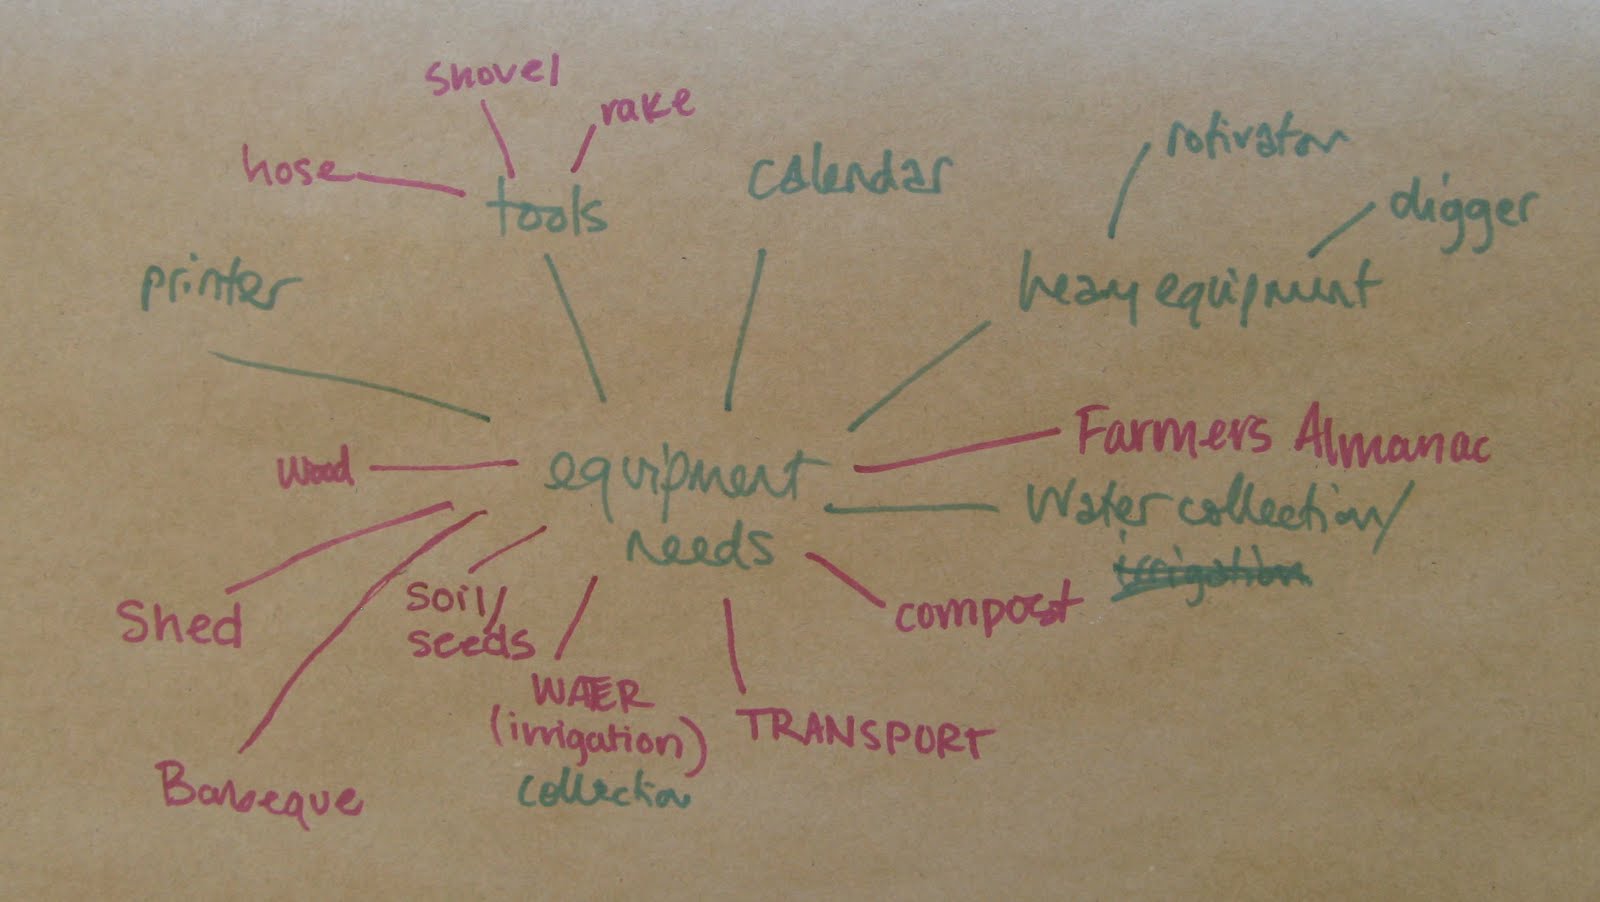 shovel
rake
hose
tools
calendar
rotivator
digger
printer
heavy equipment
Farmers Almanac
wood
equipment
needs
Water collection/
irrigation
Shed
soil/
seeds
compost
WATER
(irrigation)
collection
TRANSPORT
Barbeque